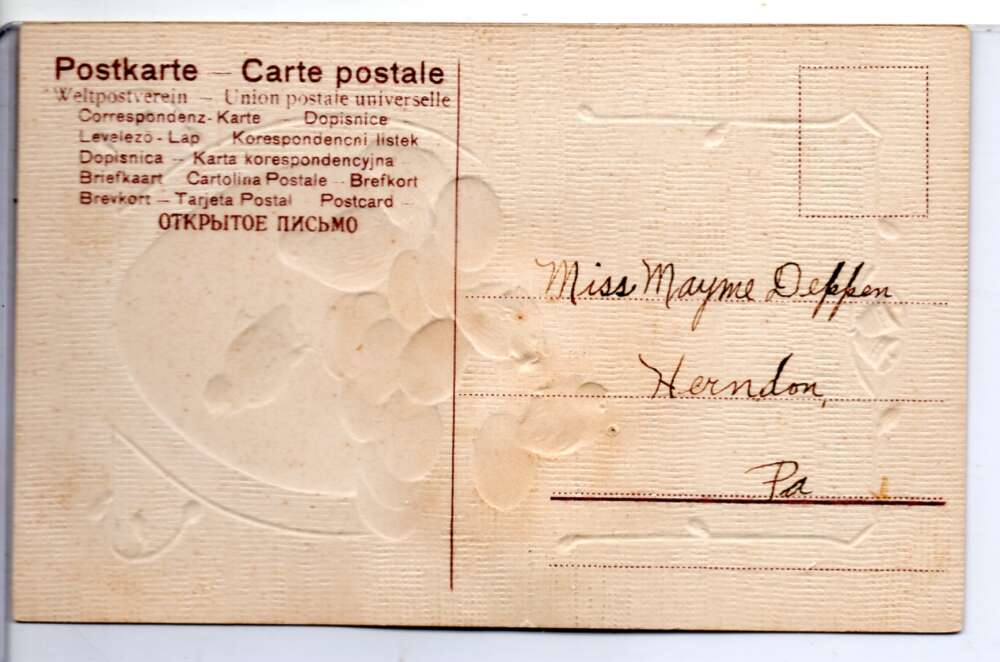 Postkarte — Carte postale
Weltpostverein — Union postale universelle
Correspondenz-Karte — Dopisnice
Levelezö-Lap Korespondencni listek
Dopisnica — Karta korespondencyjna
Briefkaart Cartolina Postale — Brefkort
Brevkort — Tarjeta Postal Postcard —
ОТКРЫТОЕ ПИСЬМО
Miss Mayme Deppen
Herndon,
Pa